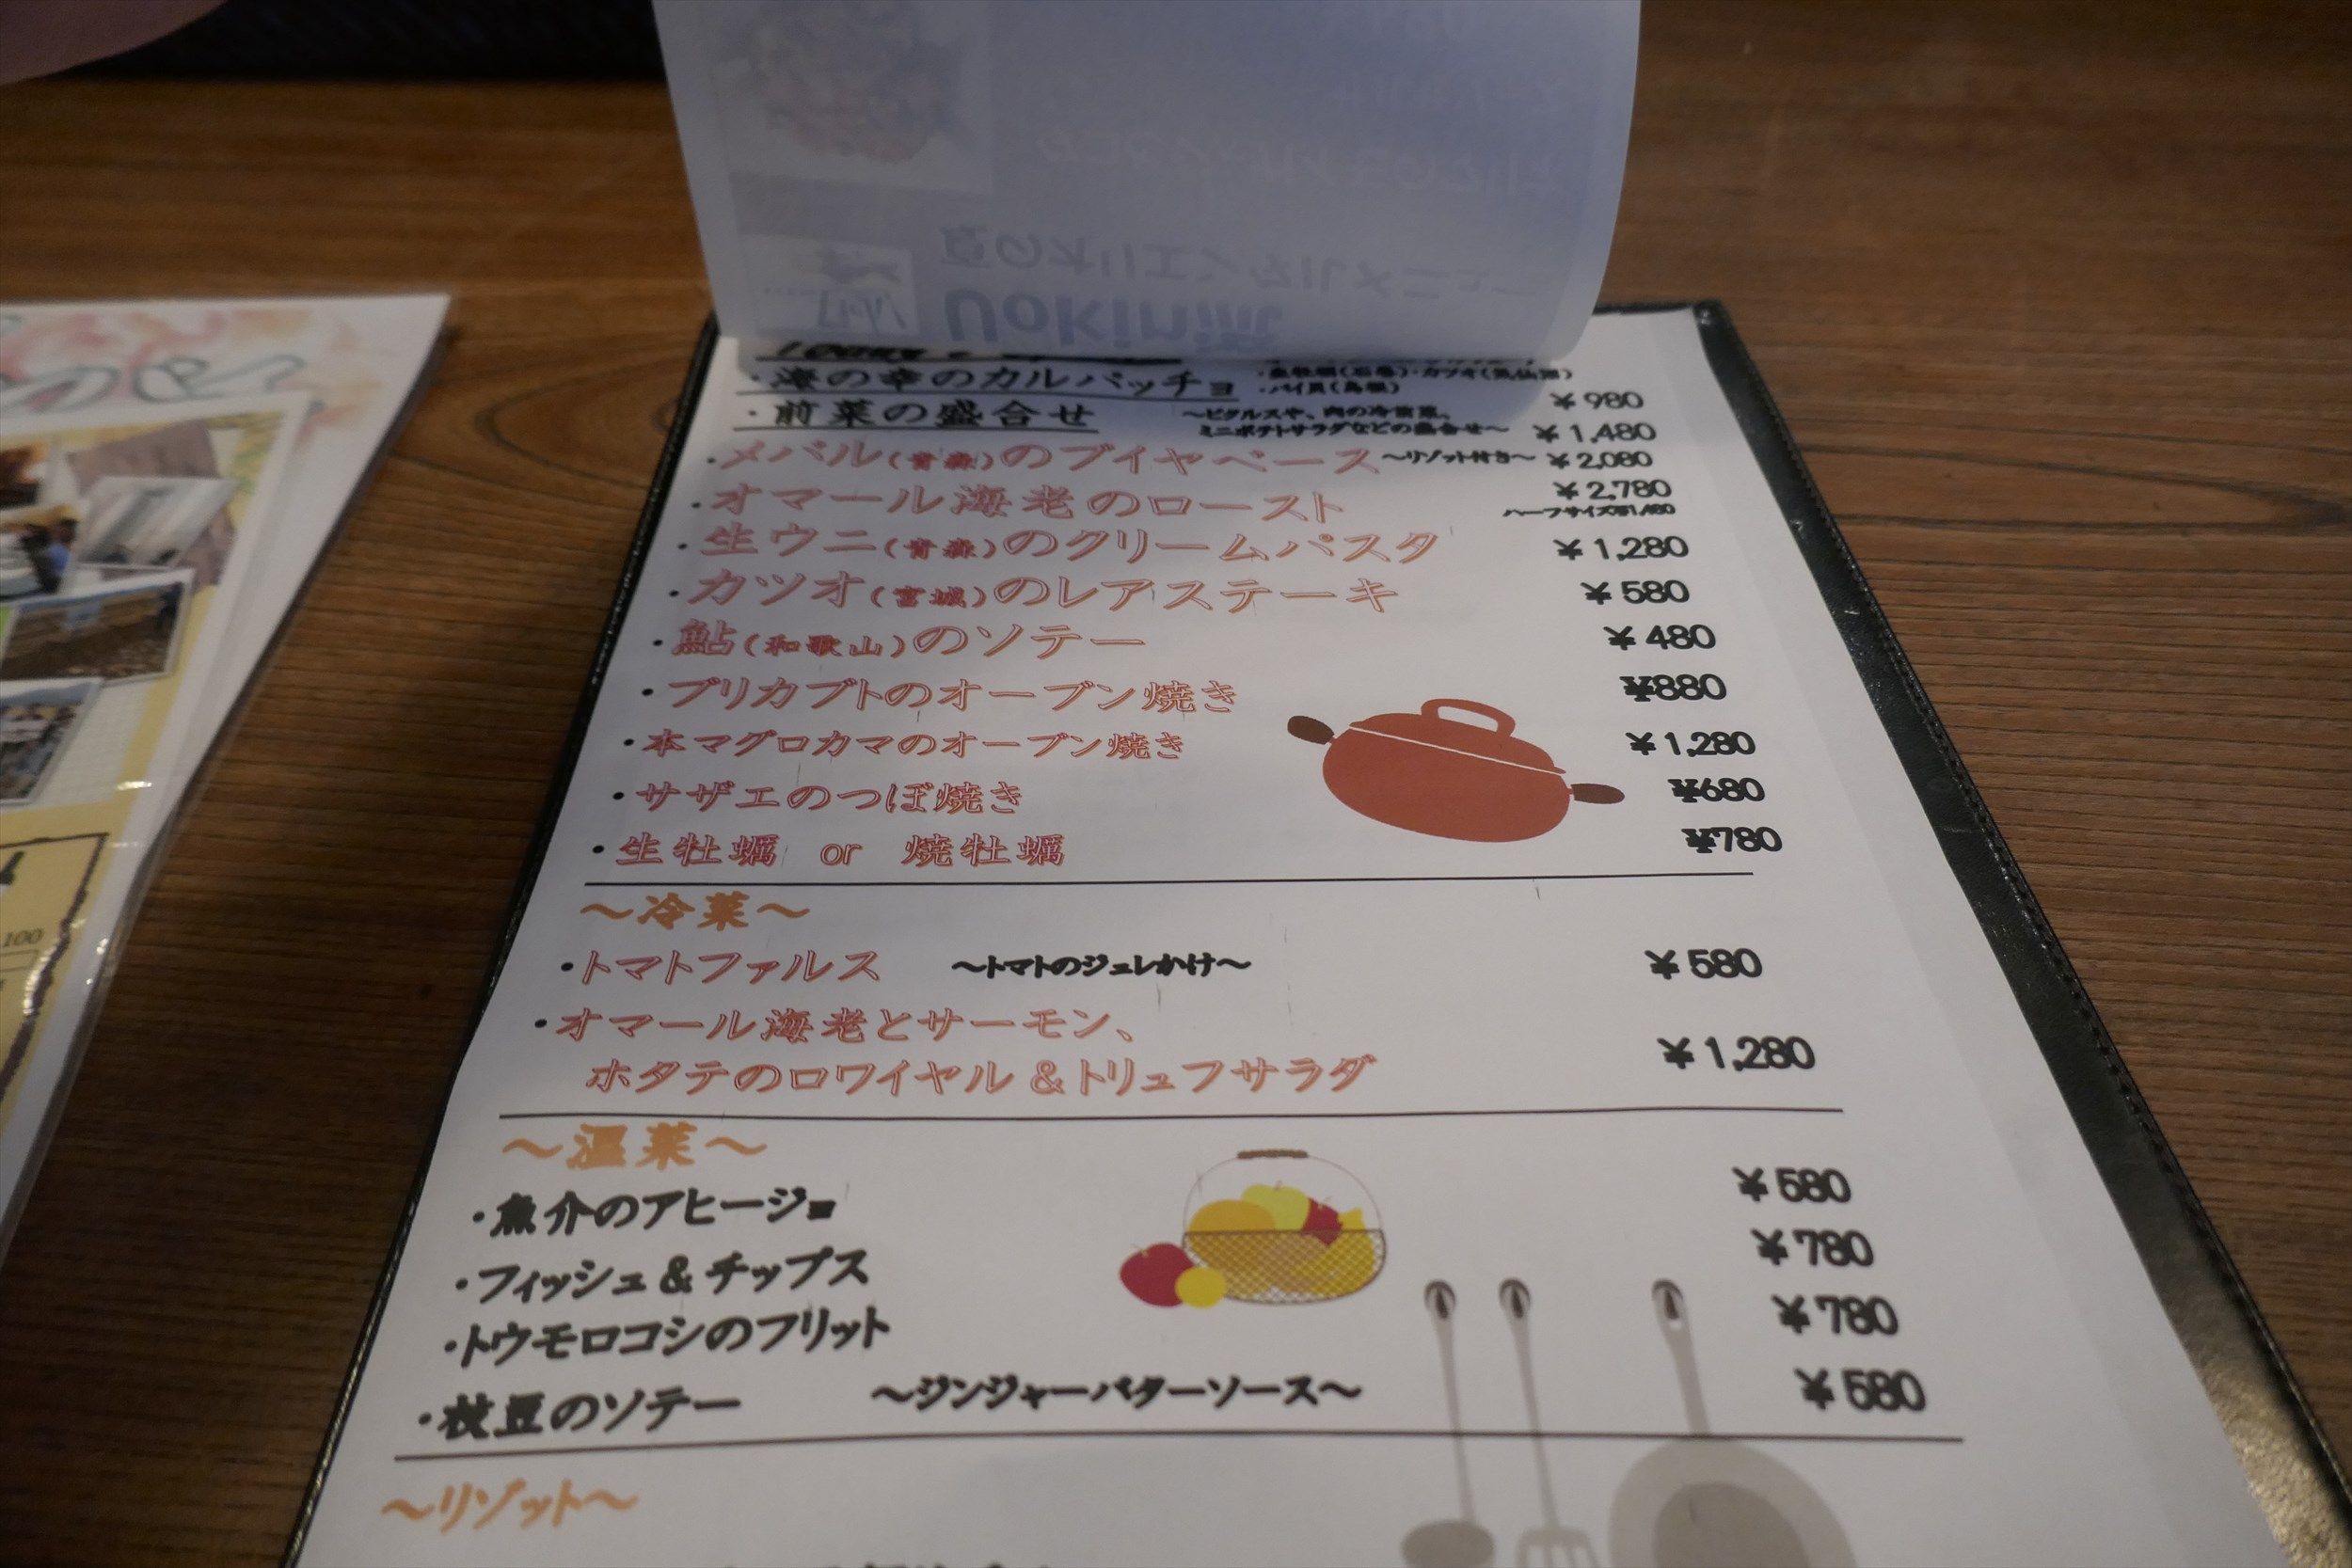 ・海の幸のカルパッチョ
・バイ貝(島根)
¥980
・前菜の盛合せ
～ピクルスや、肉の冷前菜、
ミニポテトサラダなどの盛合せ～ ¥1,480
・メバル(青森)のブイヤベース ～リゾット付き～ ¥2,080
・オマール海老のロースト ¥2,780
ハーフサイズ¥1,480
・生ウニ(青森)のクリームパスタ ¥1,280
・カツオ(宮城)のレアステーキ ¥580
・鮎(和歌山)のソテー ¥480
・ブリカブトのオーブン焼き ¥880
・本マグロカマのオーブン焼き ¥1,280
・サザエのつぼ焼き ¥680
・生牡蠣 or 焼牡蠣 ¥780
～冷菜～
・トマトファルス ～トマトのジュレかけ～ ¥580
・オマール海老とサーモン、
ホタテのロワイヤル＆トリュフサラダ ¥1,280
～温菜～
・魚介のアヒージョ ¥580
・フィッシュ＆チップス ¥780
・トウモロコシのフリット ¥780
・枝豆のソテー ～ジンジャーバターソース～ ¥580
～リゾット～
100